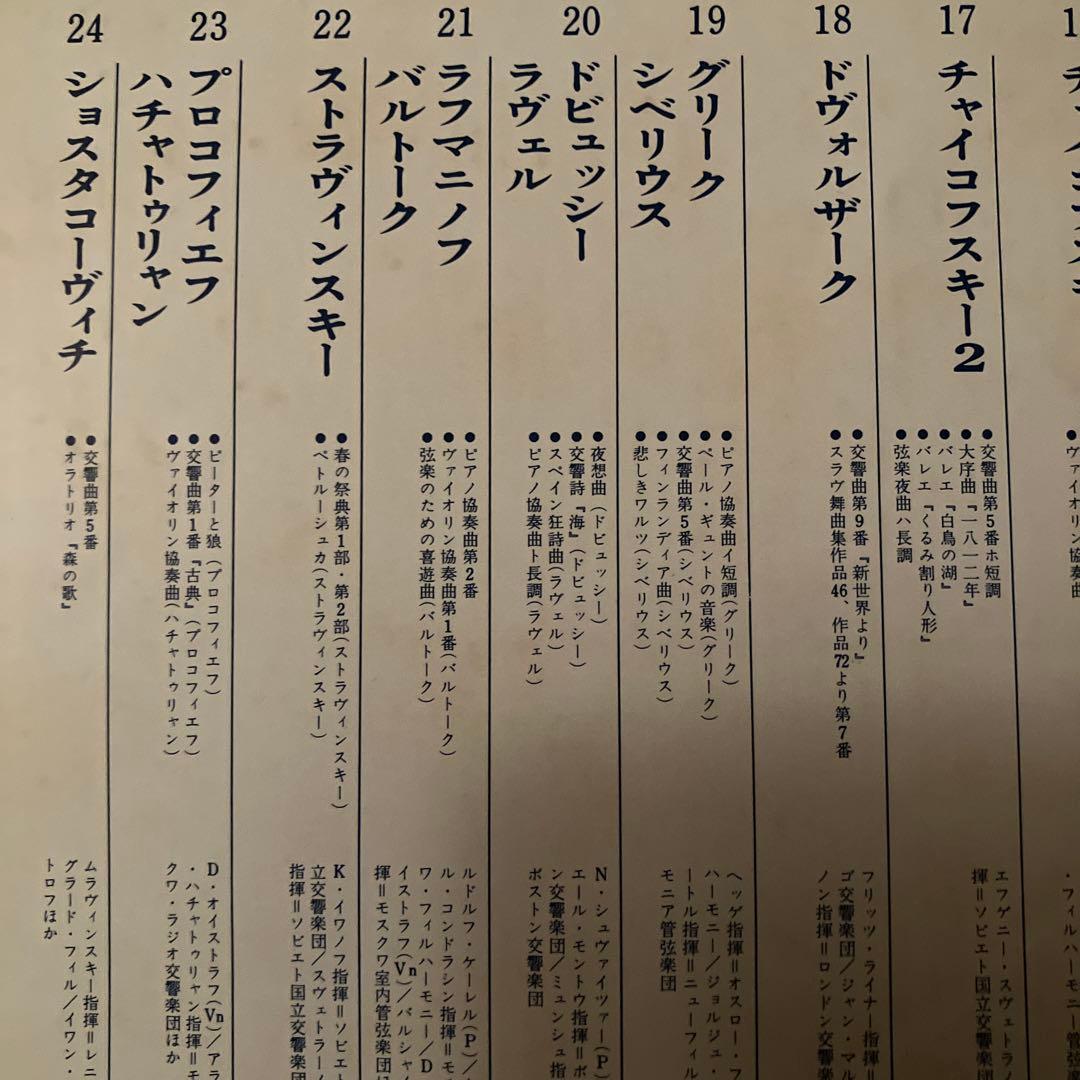 17
チャイコフスキー2
●交響曲第5番ホ短調
●大序曲『一八一二年』
●バレエ『白鳥の湖』
●バレエ『くるみ割り人形』
●弦楽夜曲ハ長調
エフゲニー・スヴェトラノ
揮＝ソビエト国立交響楽
18
ドヴォルザーク
●交響曲第9番『新世界より』
●スラヴ舞曲集作品46、作品72より第7番
フリッツ・ライナー指揮＝
ゴ交響楽団／ジャン・マル
ノン指揮＝ロンドン交響
19
グリーク
シベリウス
●ピアノ協奏曲イ短調(グリーク)
●ペール・ギュントの音楽(グリーク)
●交響曲第5番(シベリウス)
●フィンランディア曲(シベリウス)
●悲しきワルツ(シベリウス)
ヘッゲ指揮＝オスロー・フ
ハーモニー／ジョルジュ・
ートル指揮＝ニューフィル
モニア管弦楽団
20
ドビュッシー
ラヴェル
●夜想曲(ドビュッシー)
●交響詩『海』(ドビュッシー)
●スペイン狂詩曲(ラヴェル)
●ピアノ協奏曲ト長調(ラヴェル)
N・シュヴァイツァー(P)
エール・モントウ指揮＝ボ
ン交響楽団／ミュンシュ指
ボストン交響楽団
21
ラフマニノフ
バルトーク
●ピアノ協奏曲第2番
●ヴァイオリン協奏曲第1番(バルトーク)
●弦楽のための喜遊曲(バルトーク)
ルドルフ・ケーレル(P)／
ル・コンドラシン指揮＝モ
ワ・フィルハーモニー／D
イストラフ(Vn)／バルシャイ
揮＝モスクワ室内管弦楽団ほ
22
ストラヴィンスキー
●春の祭典第1部・第2部(ストラヴィンスキー)
●ペトルーシュカ(ストラヴィンスキー)
K・イワノフ指揮＝ソビエト
立交響楽団／スヴェトラーノ
指揮＝ソビエト国立交響楽
23
プロコフィエフ
ハチャトゥリャン
●ピーターと狼(プロコフィエフ)
●交響曲第1番『古典』(プロコフィエフ)
●ヴァイオリン協奏曲(ハチャトゥリャン)
D・オイストラフ(Vn)／アラ
・ハチャトゥリャン指揮＝モ
クワ・ラジオ交響楽団ほか
24
ショスタコーヴィチ
●交響曲第5番
●オラトリオ『森の歌』
ムラヴィンスキー指揮＝レニ
グラード・フィル／イワン・
トロフほか